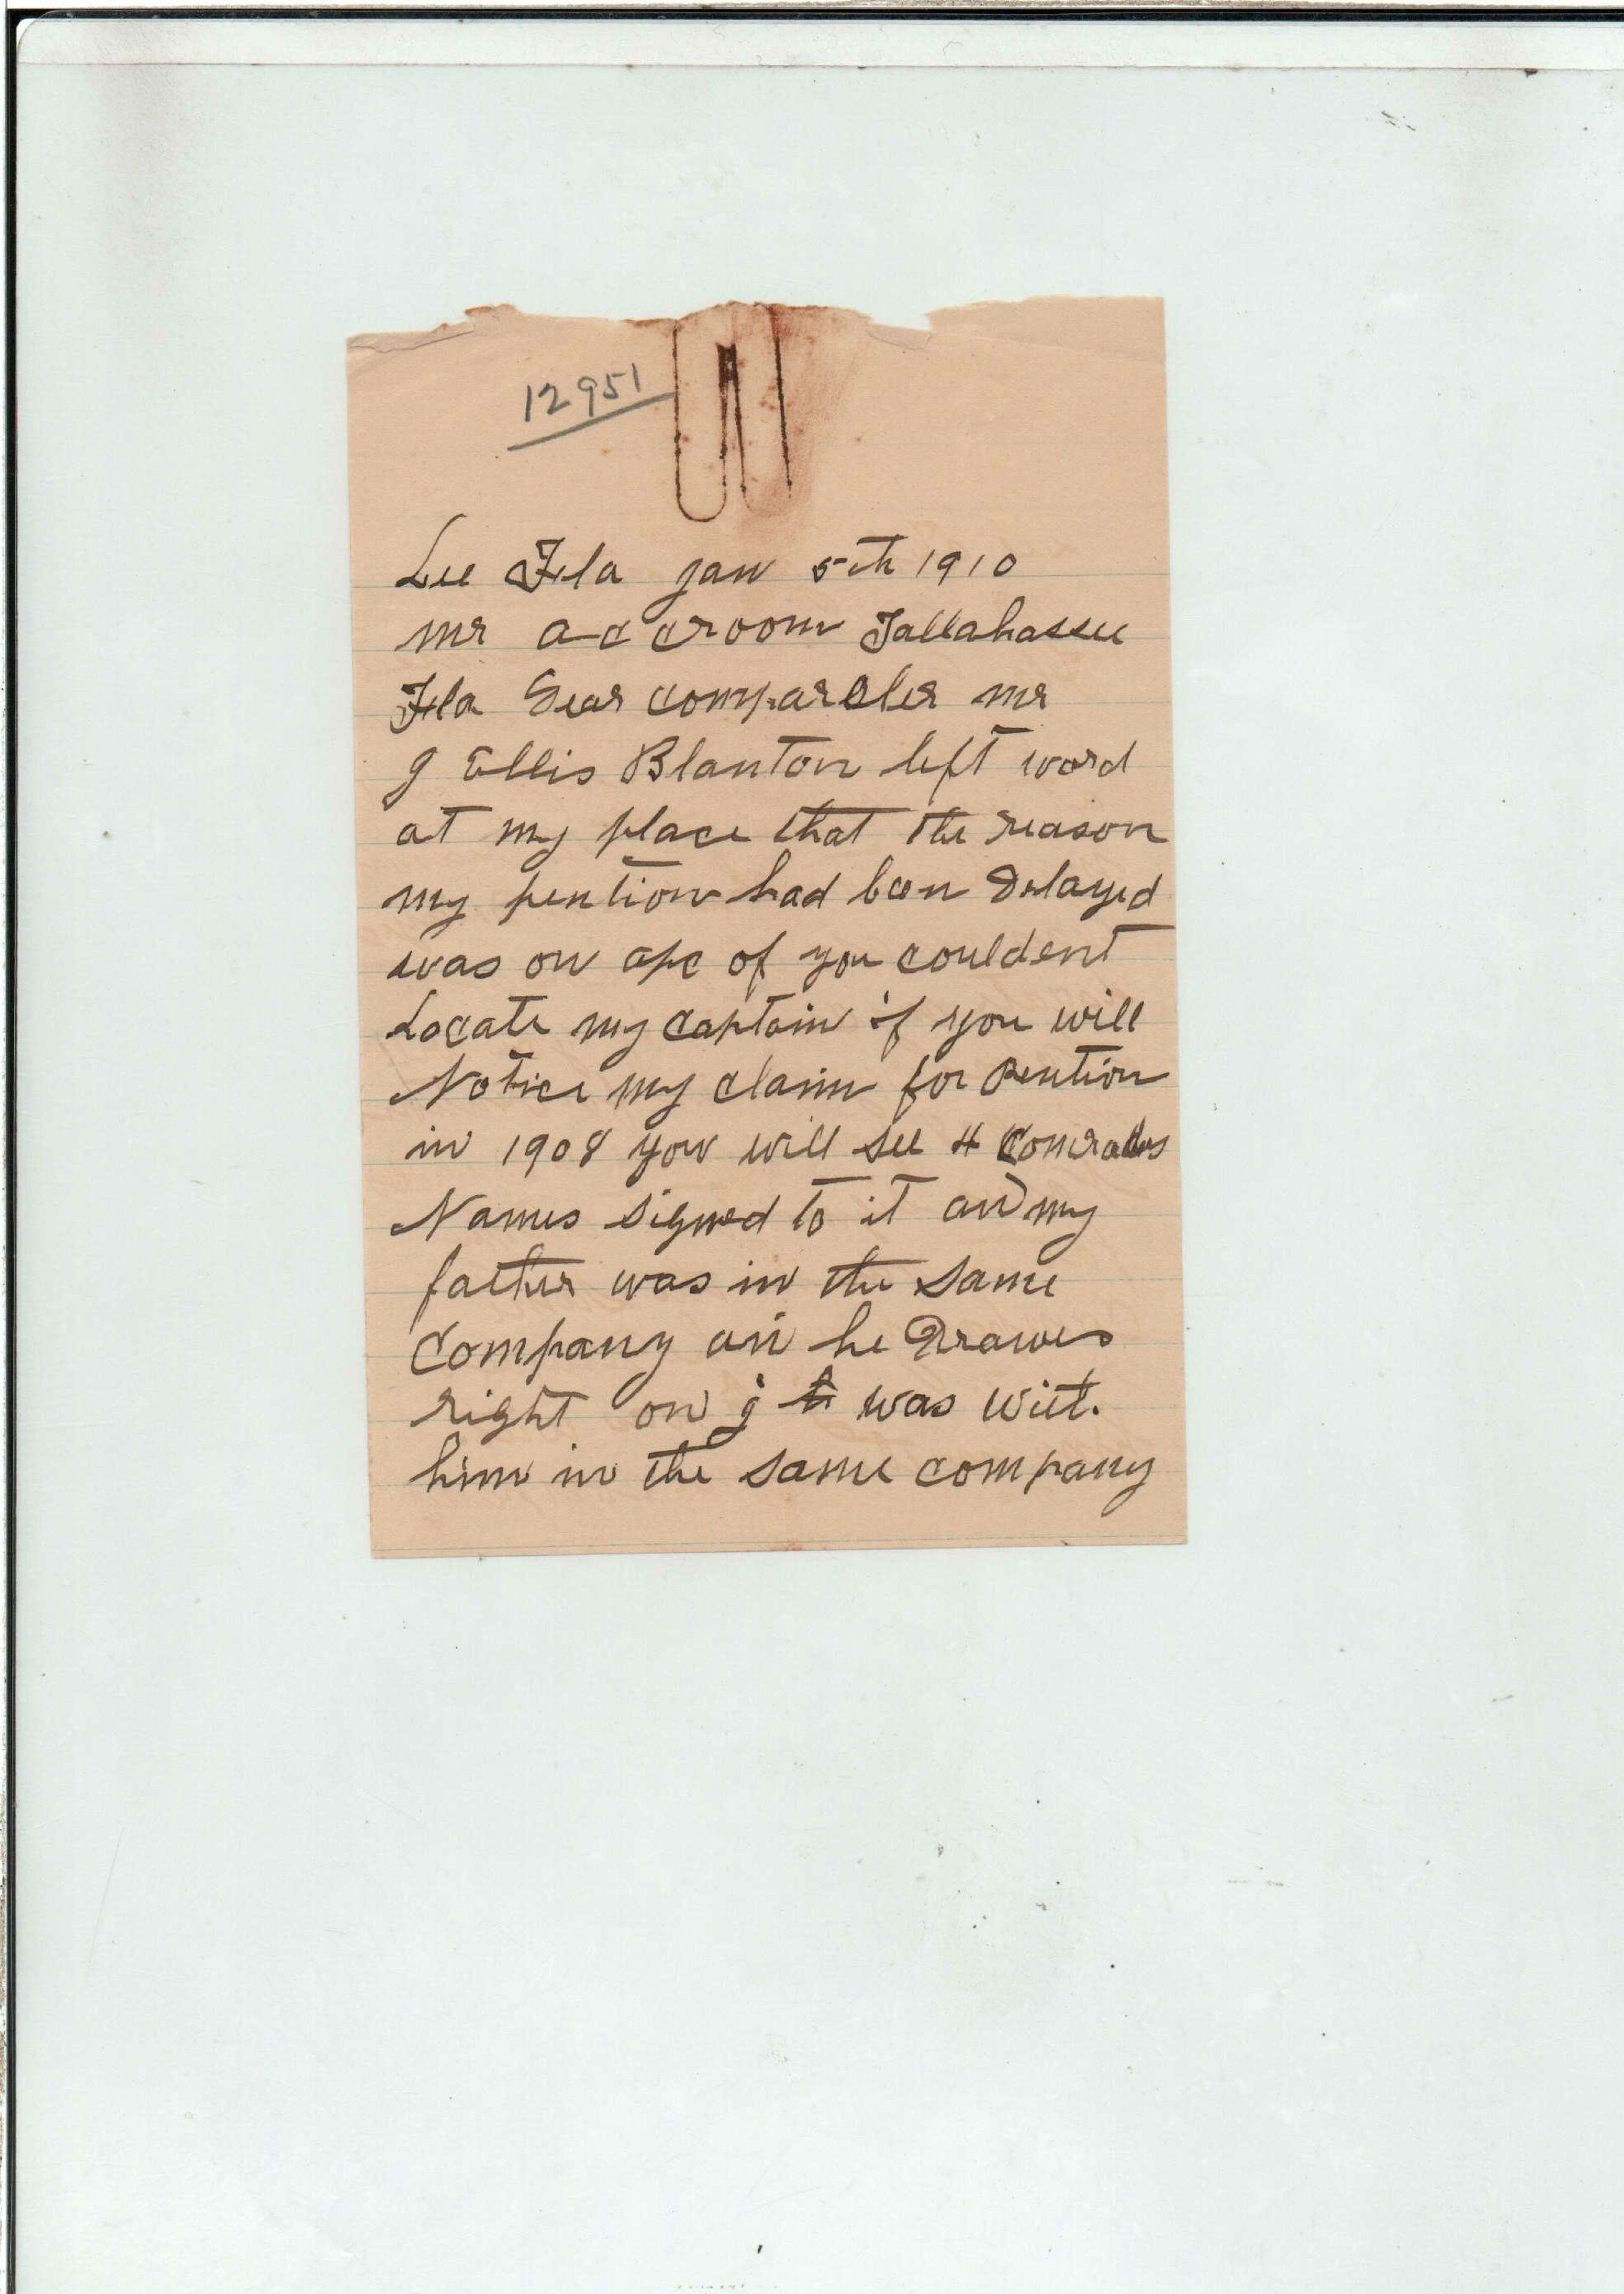 12951
Lee Fla jan 5th 1910
mr a c croom Tallahassee
Fla Dear compareler mr
J Ellis Blanton left word
at my place that the reason
my pention had been Delayed
was on apc of you couldent
Locate my captain if you will
Notice my claim for Pention
in 1908 you will see 4 Comrades
Names signed to it and my
father was in the same
Company an he Drawes
right on j was wit
him in the same company